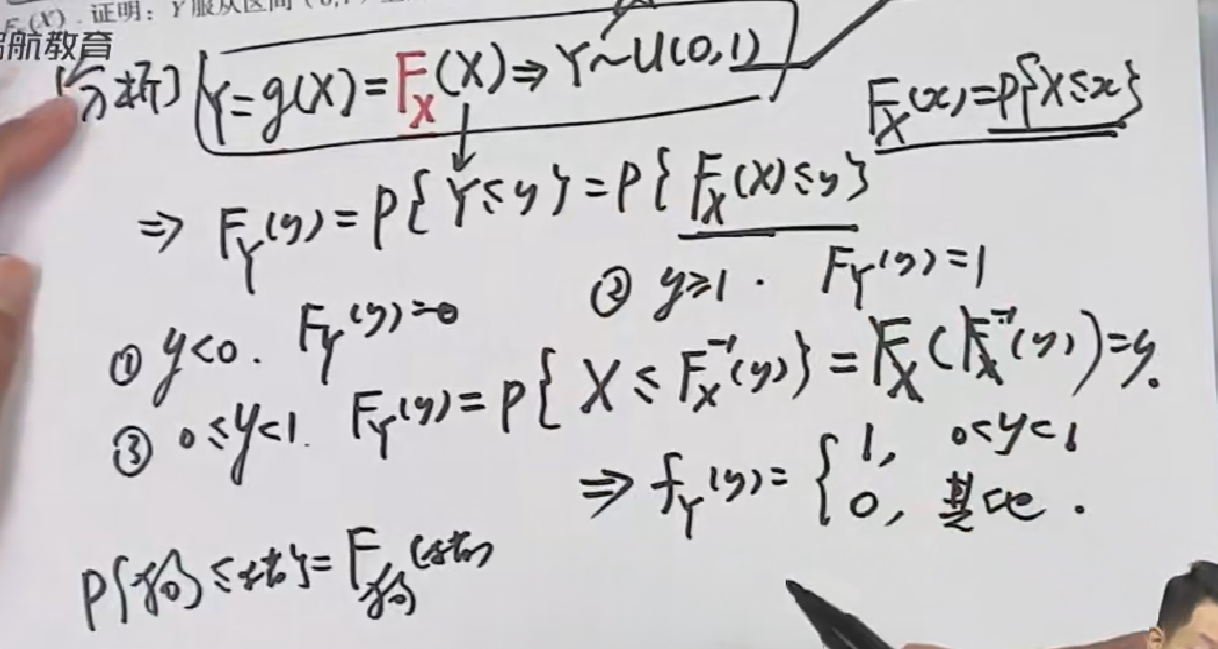 F_X(X). 证明: Y服从区间(0,1)
航教育
[分析] Y=g(X)=F_X(X)⇒Y~U(0,1)
F_X(x)=P{X≤x}
⇒ F_Y(y)=P{Y≤y}=P{F_X(X)≤y}
① y<0. F_Y(y)=0
② y≥1. F_Y(y)=1
③ 0≤y<1. F_Y(y)=P{X≤F_X^{-1}(y)}=F_X(F_X^{-1}(y))=y.
⇒ f_Y(y)={1, 0<y<1
0, 其它.
P{狗≤猫}=F_狗(猫)